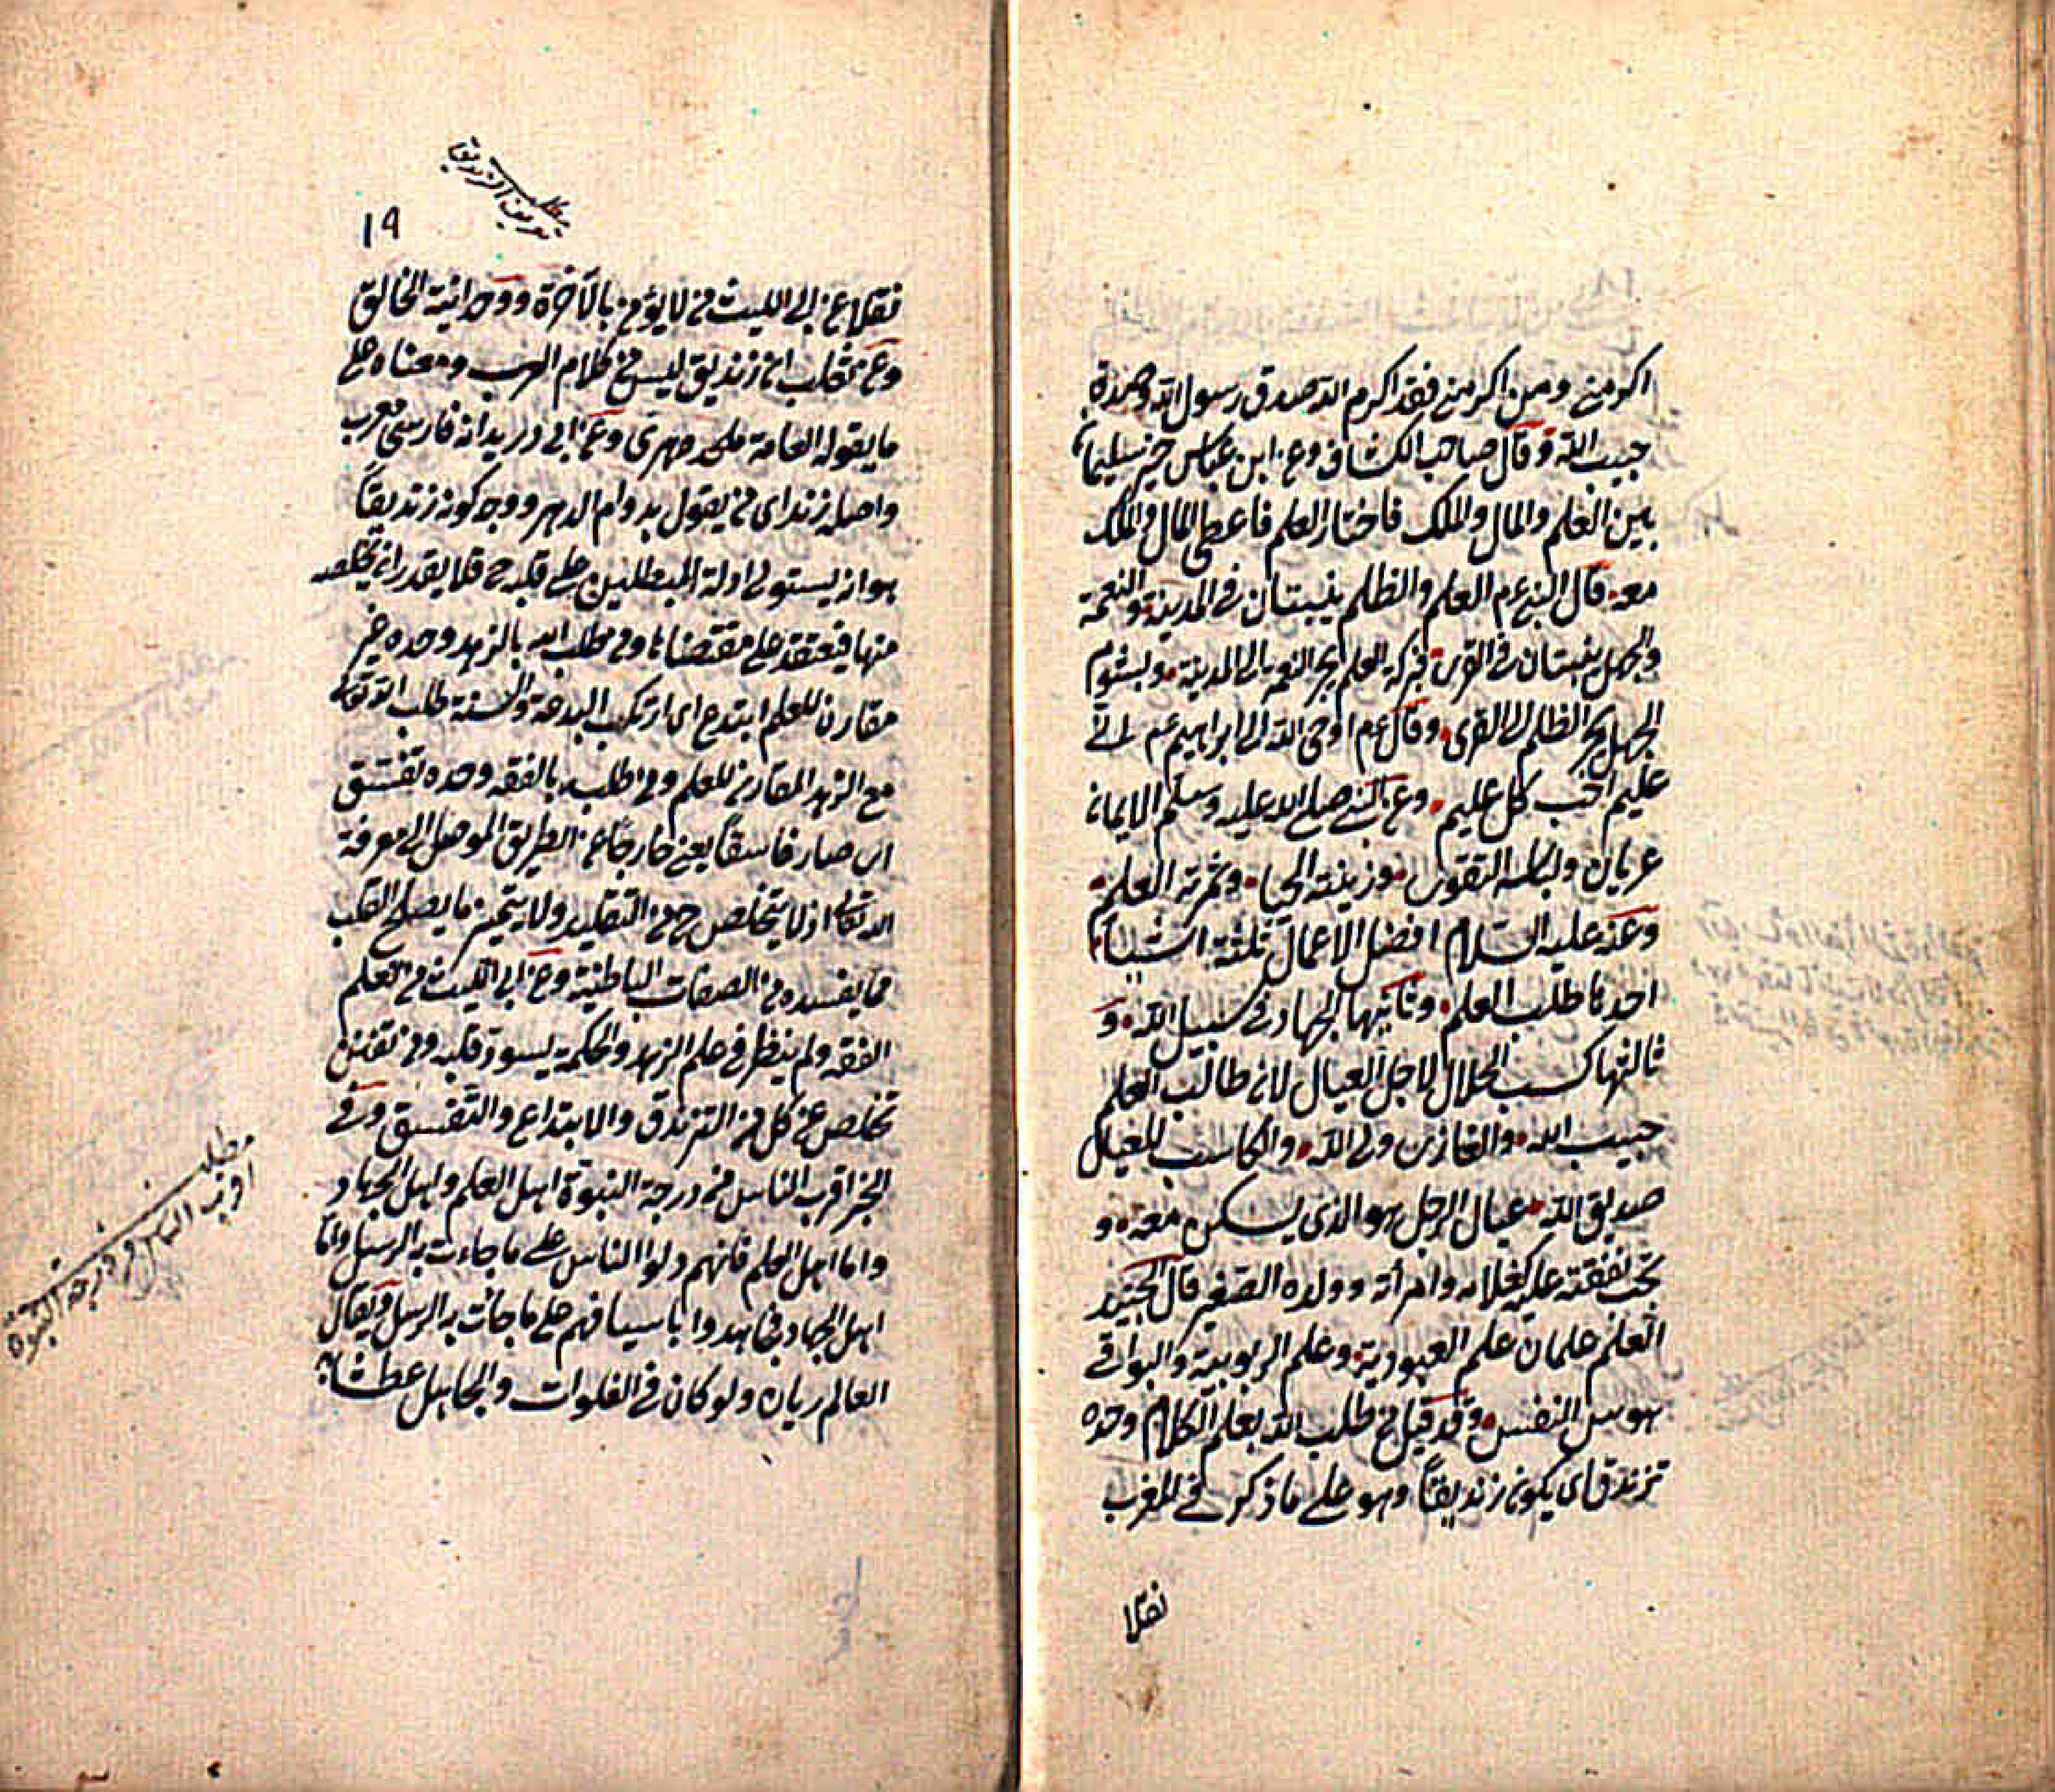 اكرمني ومن اكرمني فقد اكرم الله صدق رسول الله وصدق
حبيب الله وقال صاحب الكشاف وعن ابن عباس خير سليمان
بين العلم والمال والملك فاختار العلم فاعطى المال والملك
معه قال النبي عم العلم والظلم ينبتان في المدينة والنعمة
والجهل ينبتان في القرى فبركة العلم يجر النعمة الى المدينة وبشوم
الجهل يجر الظلم الى القرى وقال عم اوحى الله الى ابراهيم عم اني
عليم احب كل عليم وعن النبي صلى الله عليه وسلم الايمان
عريان ولباسه التقوى وزينته الحيا وثمرته العلم
وعنه عليه السلام افضل الاعمال ثلثة اشياء
احدها طلب العلم وثانيها الجهاد في سبيل الله و
ثالثها كسب الحلال لاجل العيال لان طالب العلم
حبيب الله والغازى ولى الله والكاسب للعيال
صديق الله عيال الرجل هو الذى يسكن معه و
تجب نفقته عليه كغلامه وامرأته وولده الصغير قال الجنيد
العلم علمان علم العبودية وعلم الربوبية والبواقي
هوس النفس وقد قيل من طلب الله بعلم الكلام وحده
تزندق اى يكون زنديقاً وهو على ما ذكر في المغرب
نقلا
تعريف الزنديق
١٩
نقلا عن ابي الليث من لا يؤمن بالآخرة ووحدانية الخالق
وعن ثعلب ان زنديق ليس من كلام العرب ومعناه على
ما يقوله العامة ملحد دهرى وعن ابي دريد انه فارسي معرب
واصله زنده اى من يقول بدوام الدهر ووجه كونه زنديقاً
هو ان يستولى ادلة المبطلين على قلبه ح فلا يقدر ان يخلصه
منها فيعتقد على مقتضاها ومن طلب الله بالزهد وحده غير
مقارن للعلم ابتدع اى ارتكب البدعة والسنة طلب الله تعالى
مع الزهد المقارن للعلم ومن طلبه بالفقه وحده تفسق
اى صار فاسقاً يعني خارجاً عن الطريق الموصل الى معرفة
الله تعالى اذ لا يتخلص ح من التقليد ولا يتميز ما يصلح القلب
مما يفسده من الصفات الباطنية وعن ابي الليث من تعلم
الفقه ولم ينظر في علم الزهد والحكمة يسود قلبه ومن تفنن
تخلص عن كل من التزندق والابتداع والتفسق وفي
الخبر اقرب الناس من درجة النبوة اهل العلم واهل الجهاد
واما اهل العلم فانهم دلوا الناس على ما جاءت به الرسل واما
اهل الجهاد فجاهدوا باسيافهم على ما جائت به الرسل ويقال
العالم ريان ولو كان في الفلوات والجاهل عطشان
مطلب
اقرب الناس من درجة النبوة